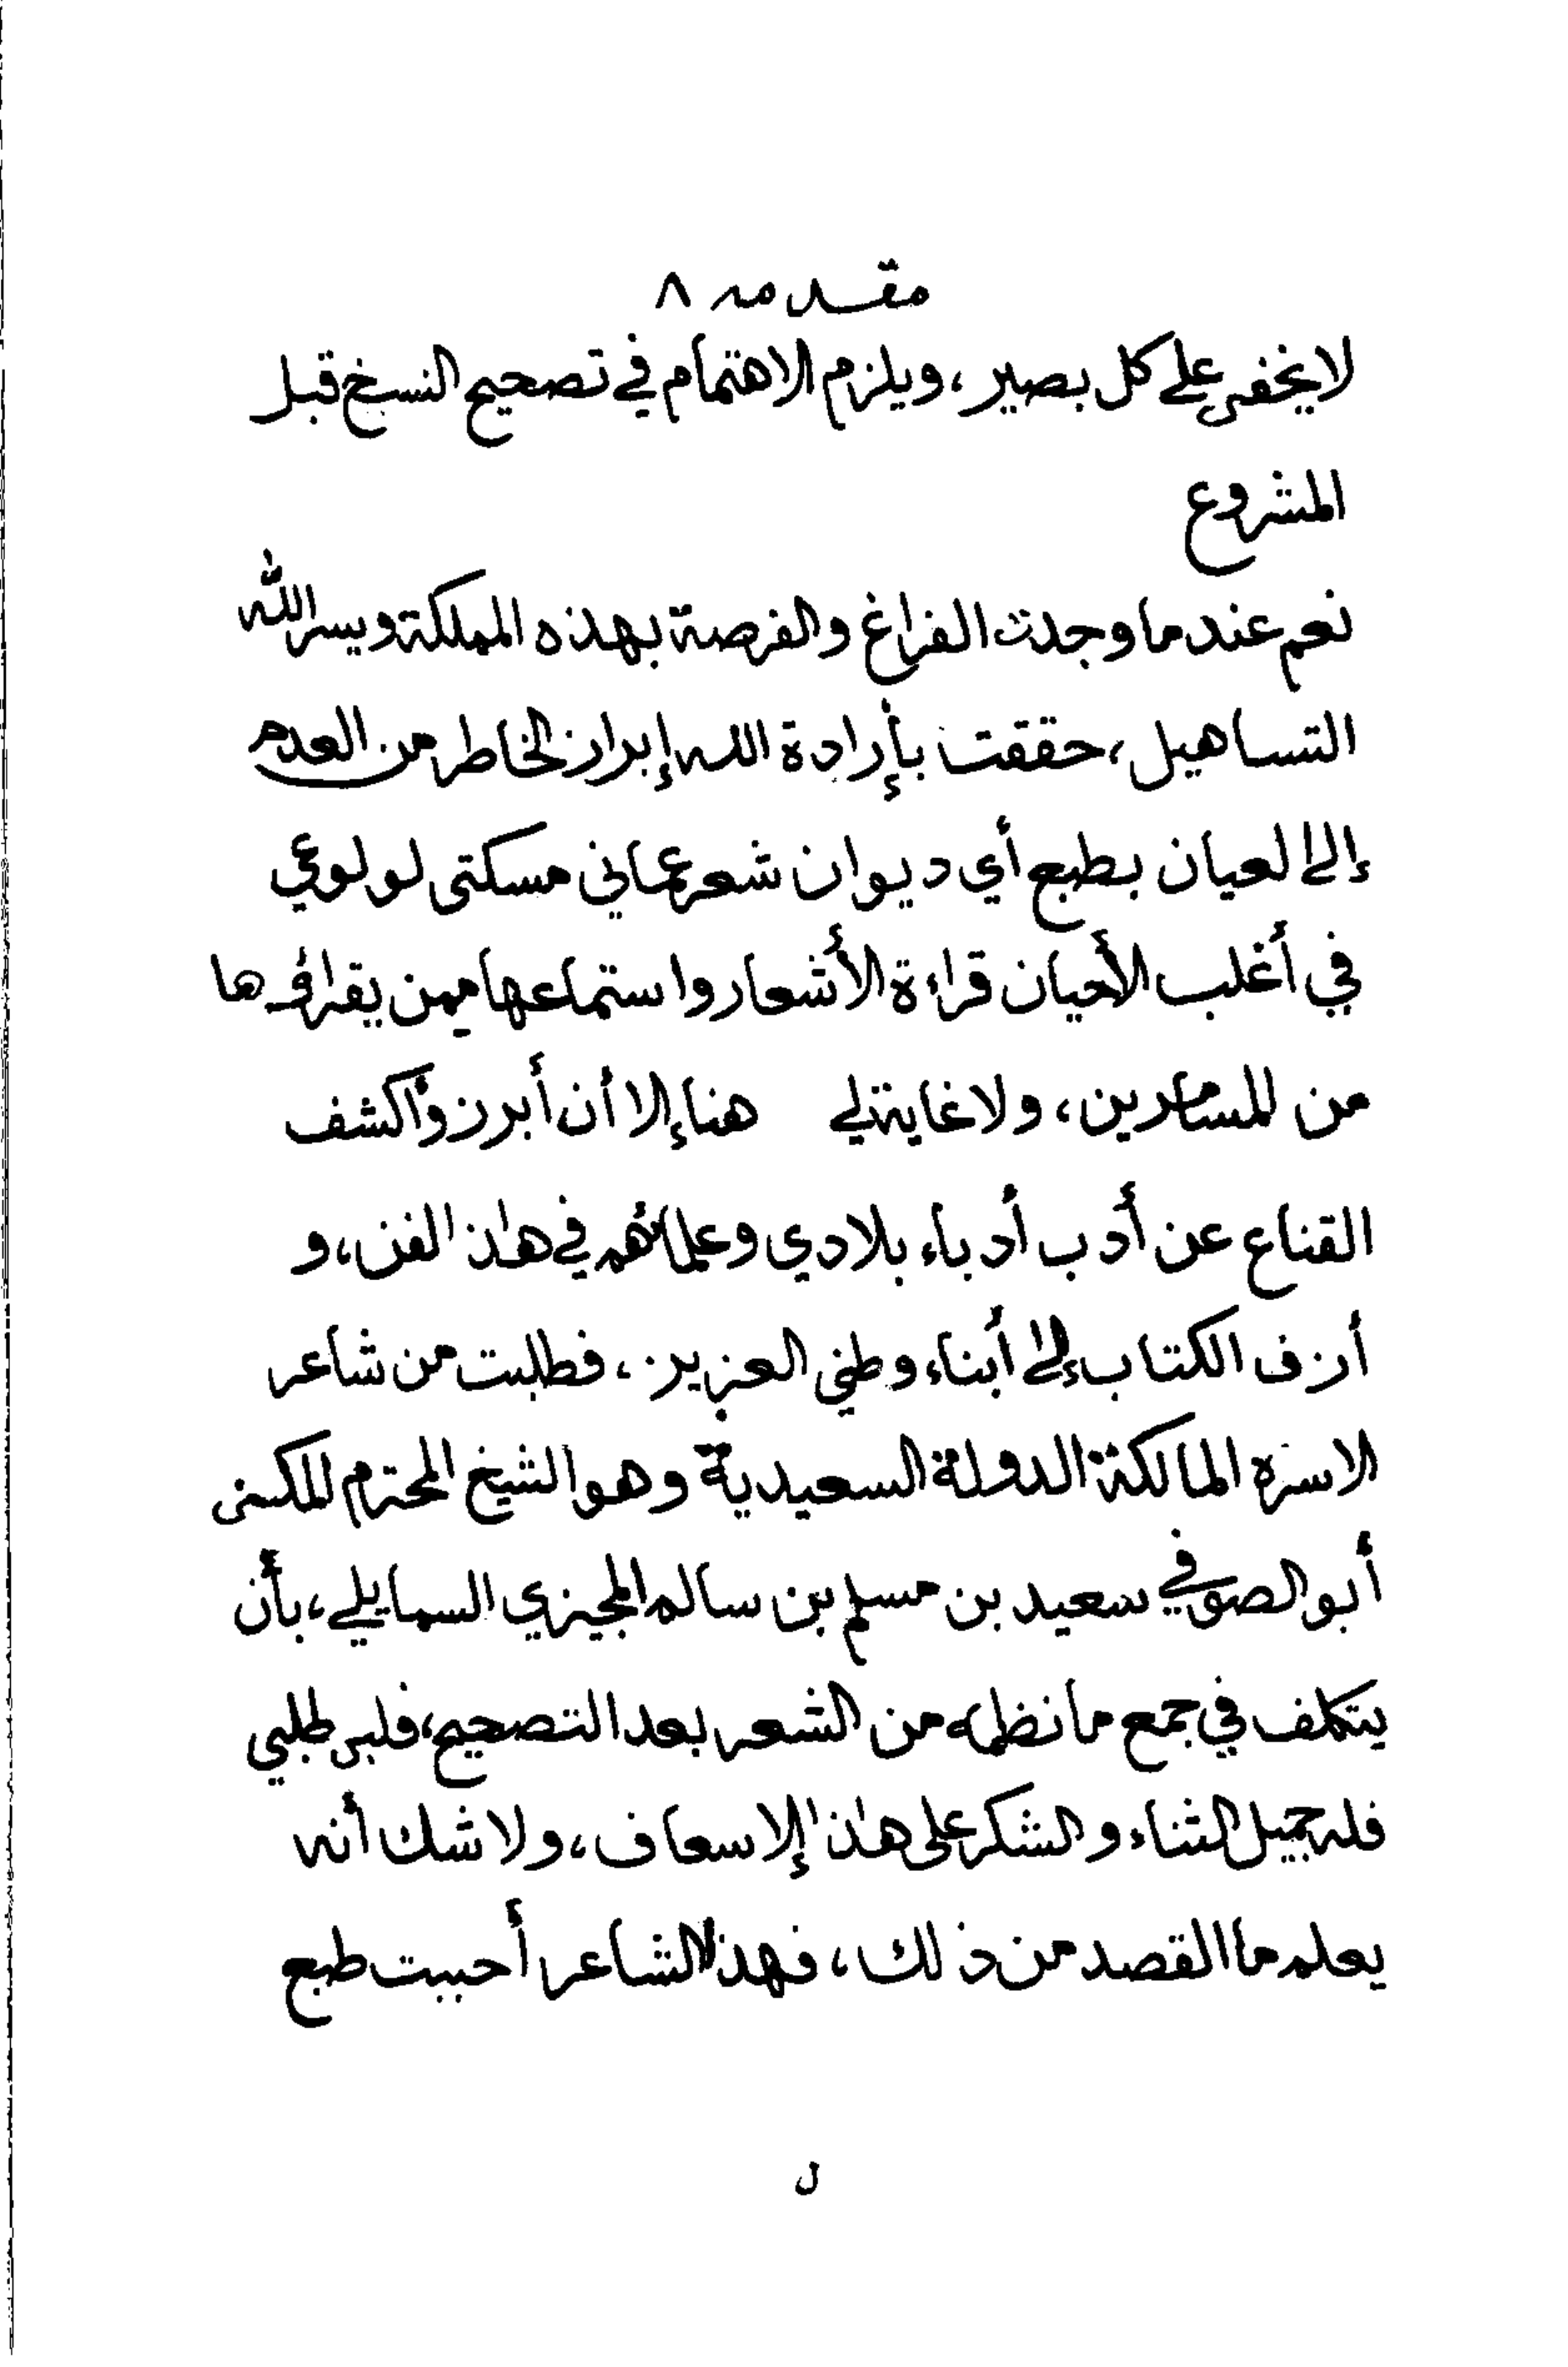 مقدمه ٨
لا يخفى على كل بصير، ويلزم الاهتمام في تصحيح النسخ قبل
المشروع
نعم عندما وجدت الفراغ والفرصة بهذه المملكة ويسر الله
التساهيل، حققت بأرادة الله إبراز الخاطر من العدم
إلى العيان بطبع أي ديوان شعر عماني مسكتى لولوعي
في أغلب الأحيان قراءة الأشعار واستماعها ممن يقراؤها
من المسامرين، ولا غاية لي هنا إلا أن أبرز وأكشف
القناع عن أدب أدباء بلادي وعلمائهم في هذا الفن، و
أزف الكتاب إلى أبناء وطني العزيز، فطلبت من شاعر
الاسرة المالكة الدولة السعيدية وهو الشيخ المحترم المكنى
أبو الصوفي سعيد بن مسلم بن سالم المجيزي السمايلي، بأن
يتكلف في جمع ما نظمه من الشعر بعد التصحيح، فلبى طلبي
فله جميل الثناء والشكر على هذا إلاسعاف، ولا شك أنه
يعلم ما القصد من ذلك، فهذا الشاعر أحببت طبع
ل